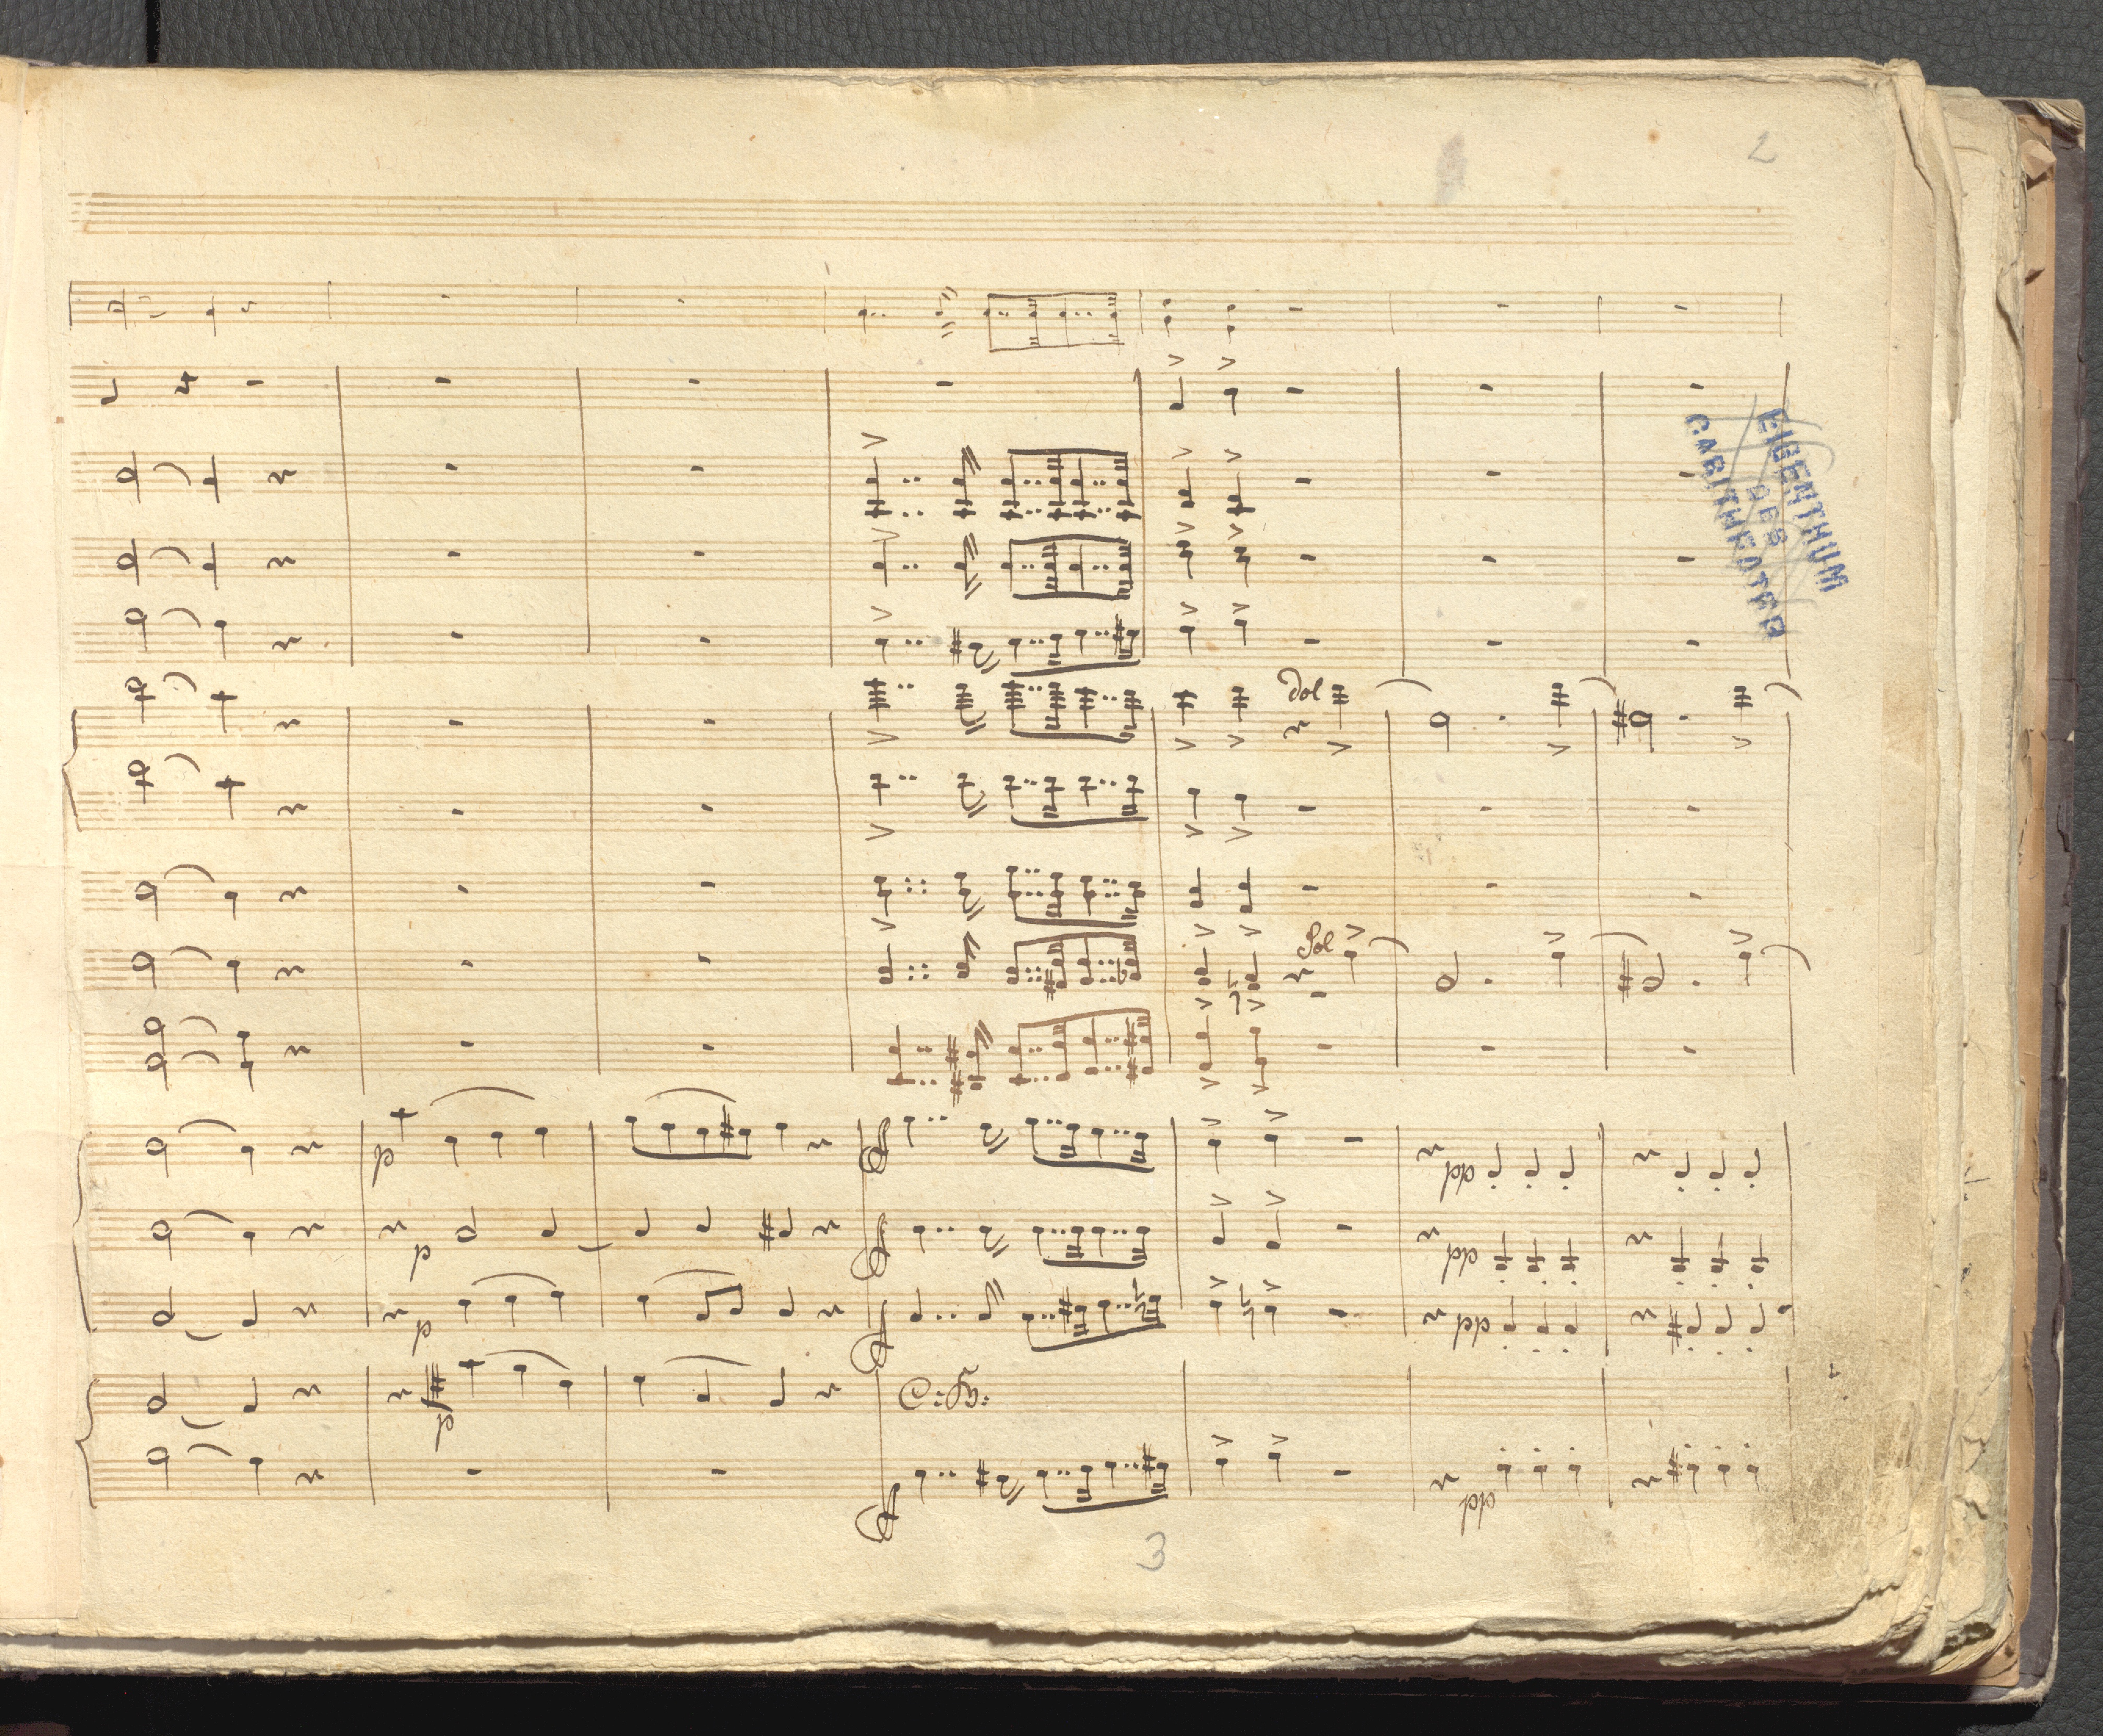 2
EIGENTHUM
DES
CARLTHEATER
dol
Sol
p
p
p
p
pp
pp
pp
pp
3